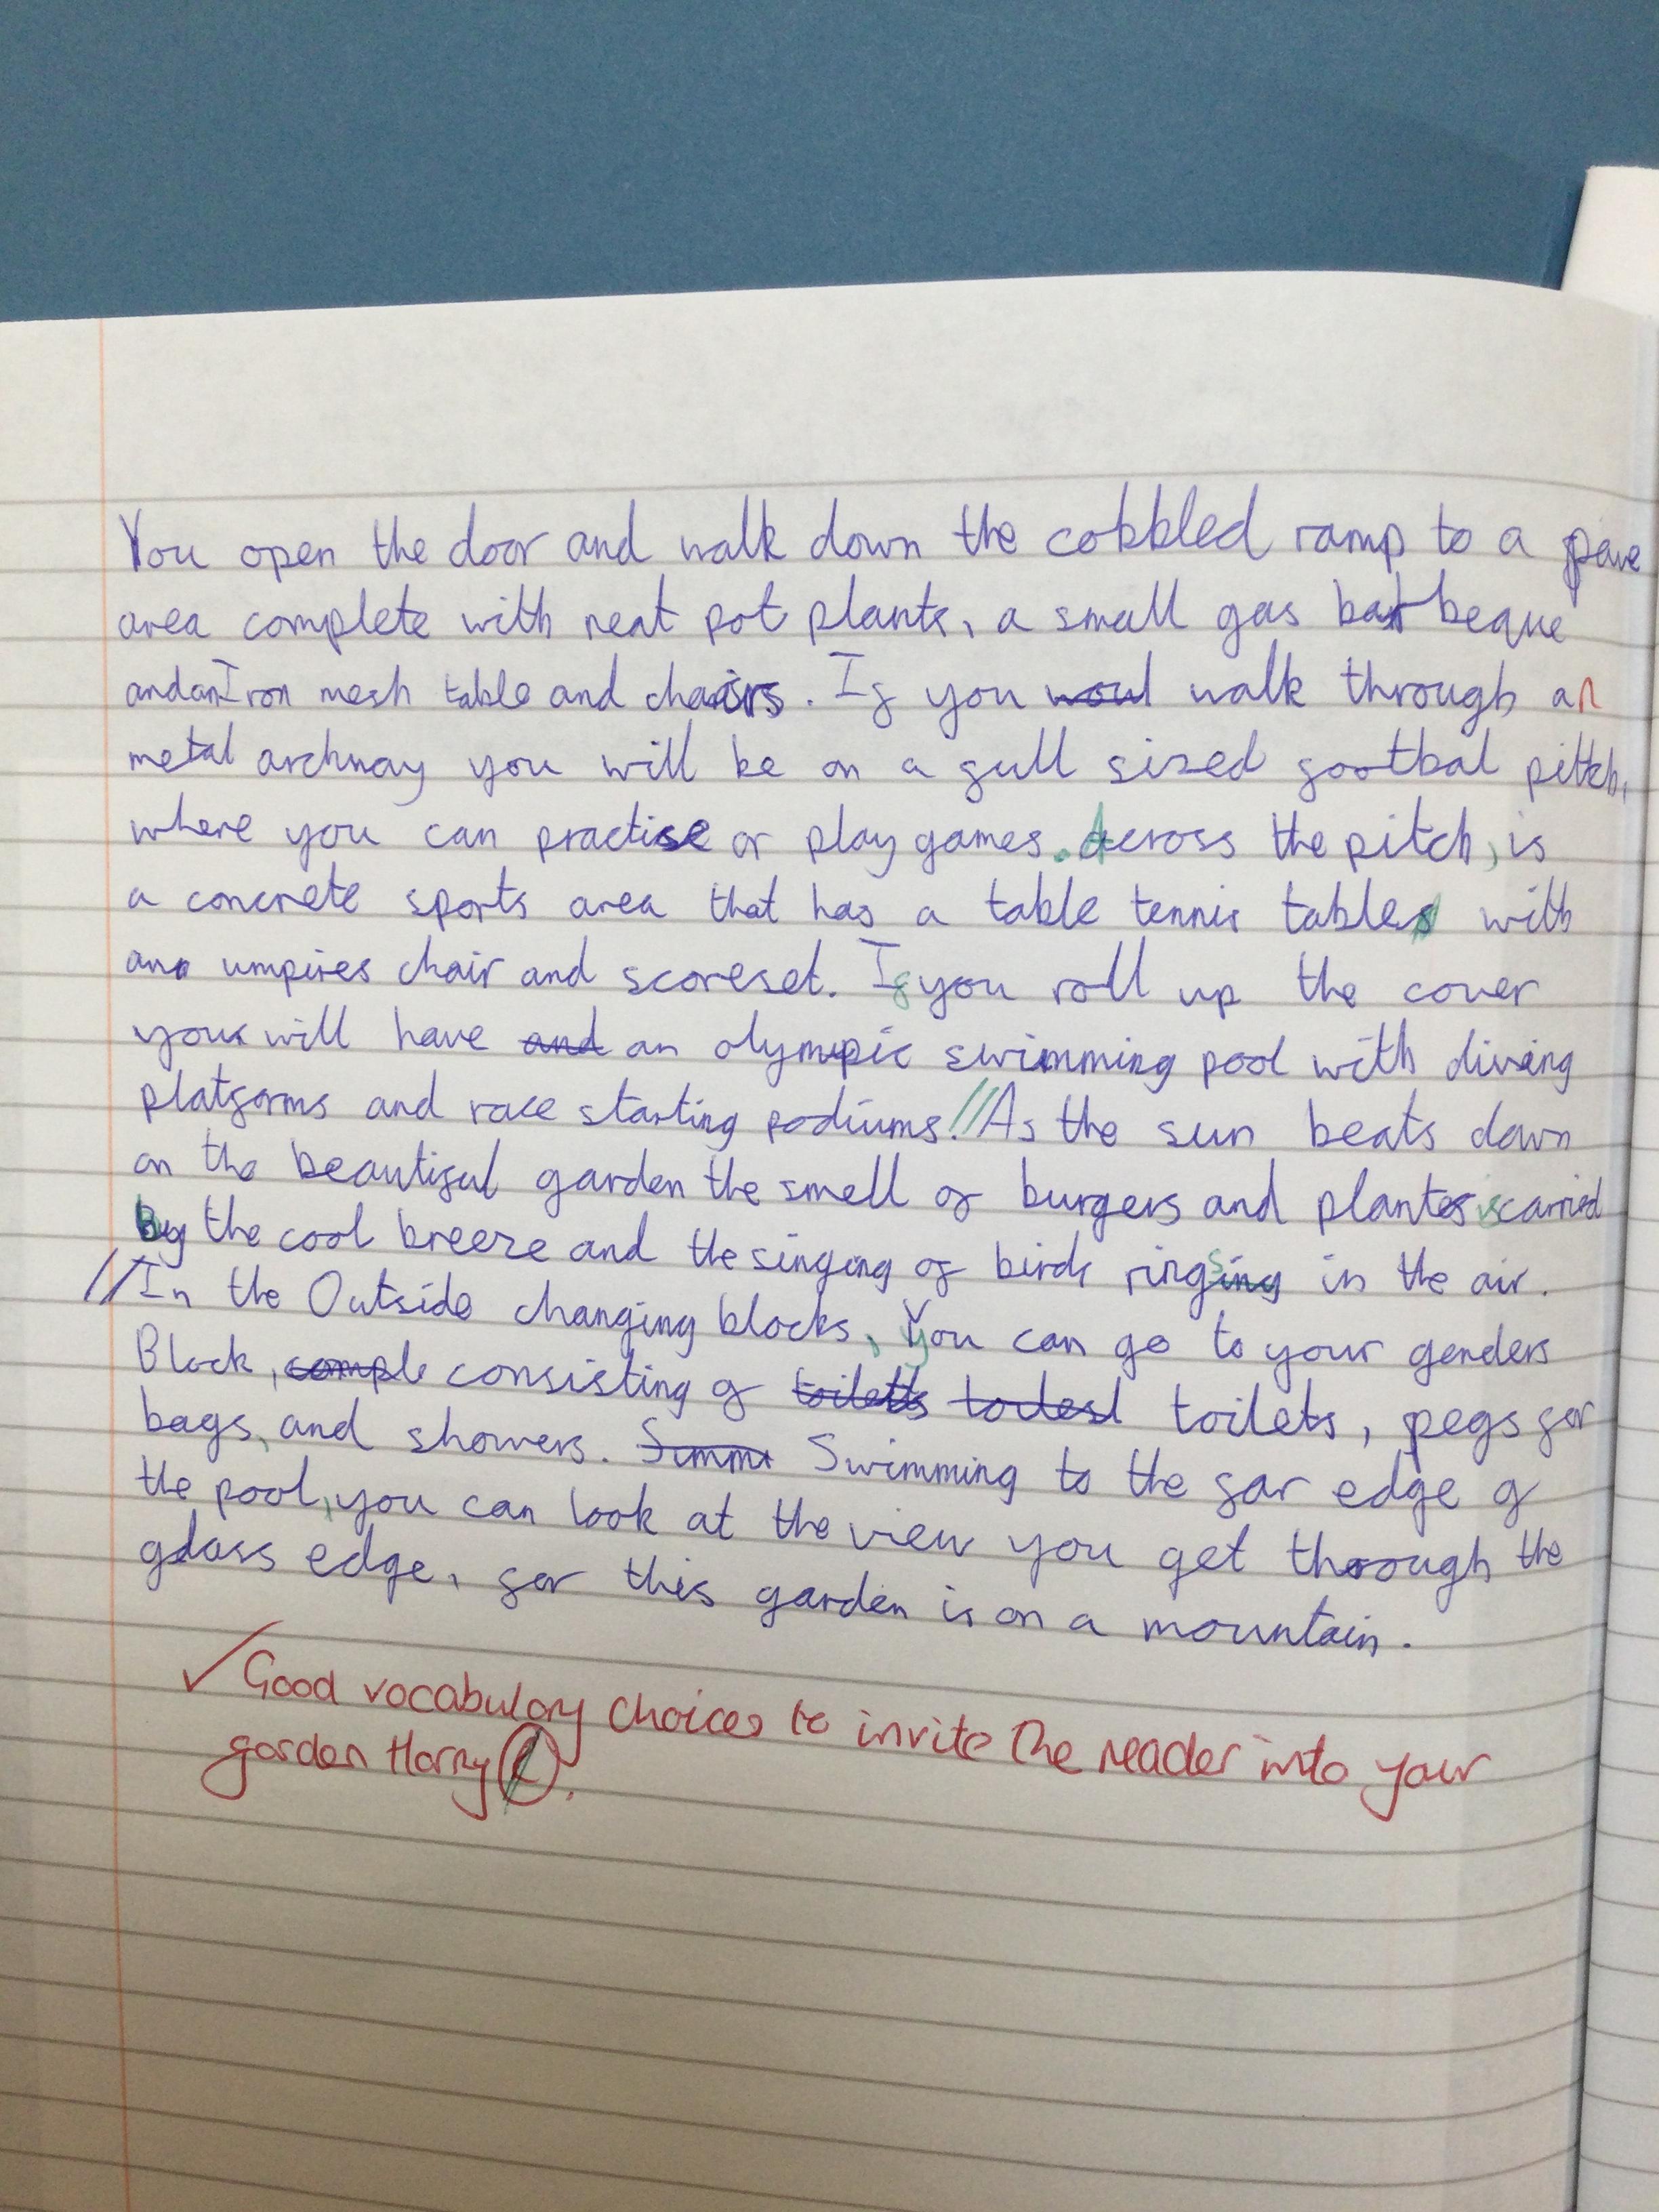 You open the door and walk down the cobbled ramp to a pave
area complete with neat pot plants, a small gas barbeque
and an Iron mesh table and chairs. If you woul walk through an
metal archway you will be on a full sized footbal pittch,
where you can practise or play games. Across the pitch, is
a concrete sports area that has a table tennis table with
an umpires chair and scoreset. If you roll up the cover
you will have and an olympic swimming pool with diving
platforms and race starting podiums! // As the sun beats down
on the beautiful garden the smell of burgers and plants is carried
by the cool breeze and the singing of birds rings in the air.
// In the Outside changing blocks, you can go to your genders
Block, comple consisting of toiletts todest toilets, pegs for
bags, and showers. Simmi Swimming to the far edge of
the pool, you can look at the view you get through the
glass edge, for this garden is on a mountain.
✓ Good vocabulary choices to invite the reader into your
garden Harry L.